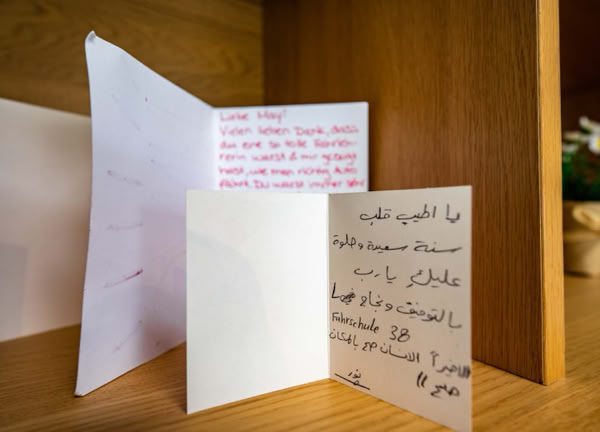 Liebe May!
Vielen lieben Dank, dass
du eine so tolle Fahrleh-
rerin warst & mir gezeigt
hast, wie man richtig Auto
fährt. Du warst immer sehr
يا اطيب قلب
سنة سعيدة وحلوة
عليكِ يارب
بالتوفيق ونجاح
Fahrschule 38
الانسان صح بالمكان
صح ))
نور